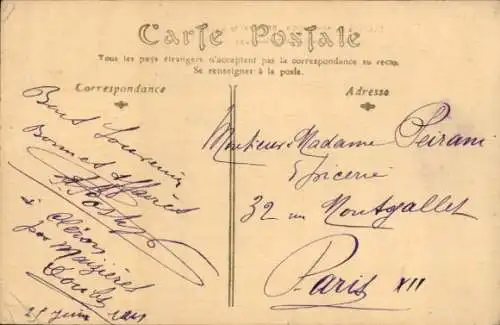 Carte Postale
Tous les pays étrangers n'acceptent pas la correspondance au recto.
Se renseigner à la poste.
Correspondance
Adresse
Bons Souvenirs
Bonnes
à Cléron
par Maizières
Doubs
25 Juin
Monsieur Madame Peirani
Epicerie
32 rue Montgallet
Paris XII